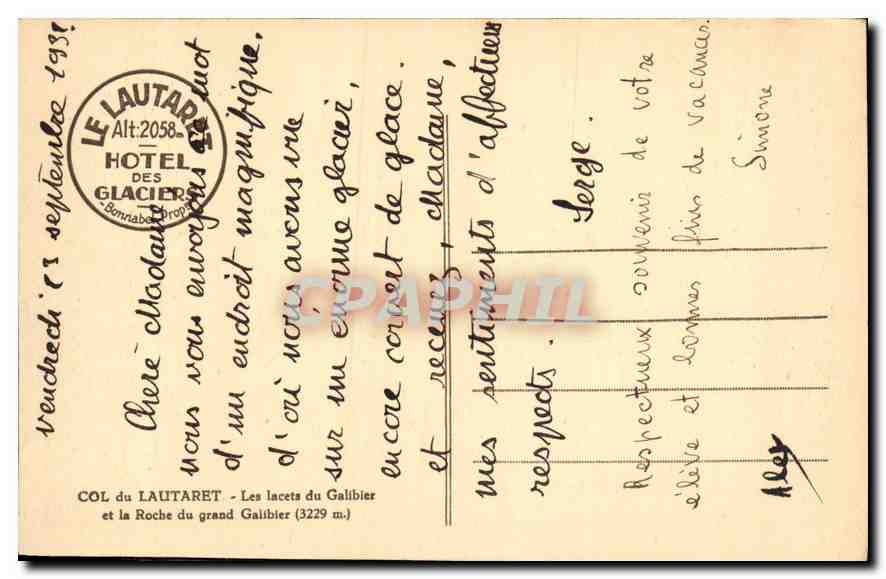 vendredi 13 septembre 193
Chère Madame,
nous vous envoyons ce mot
d'un endroit magnifique.
d'où nous avons vue
sur un énorme glacier,
encore couvert de glace.
et recevez, Madame,
mes sentiments d'affectueux
respects.
Serge.
Respectueux souvenir de votre
élève et bonnes fins de vacances.
Simone
Alex
LE LAUTARET
Alt: 2058m
HOTEL
DES
GLACIERS
- Bonnabel Propre -
COL du LAUTARET - Les lacets du Galibier
et la Roche du grand Galibier (3229 m.)
CPAPHIL